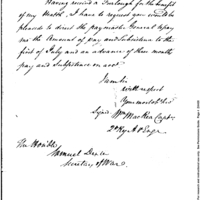 Having received a Furlough for the benefit
of my Health, I have to request you would
please to direct the paymaster General to pay
me the Amount of pay and Subsistence to the
first of July and an advance of three months
pay and Subsistence on acct
I am Sir
with respect
Your most obt Sert
Signed Wm MacRea Capt
2d Regt A & Engs
The Honble
Samuel Dexter
Secretary of War